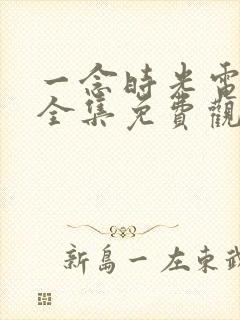 一念時光電
全集免費觀
新島一左東武